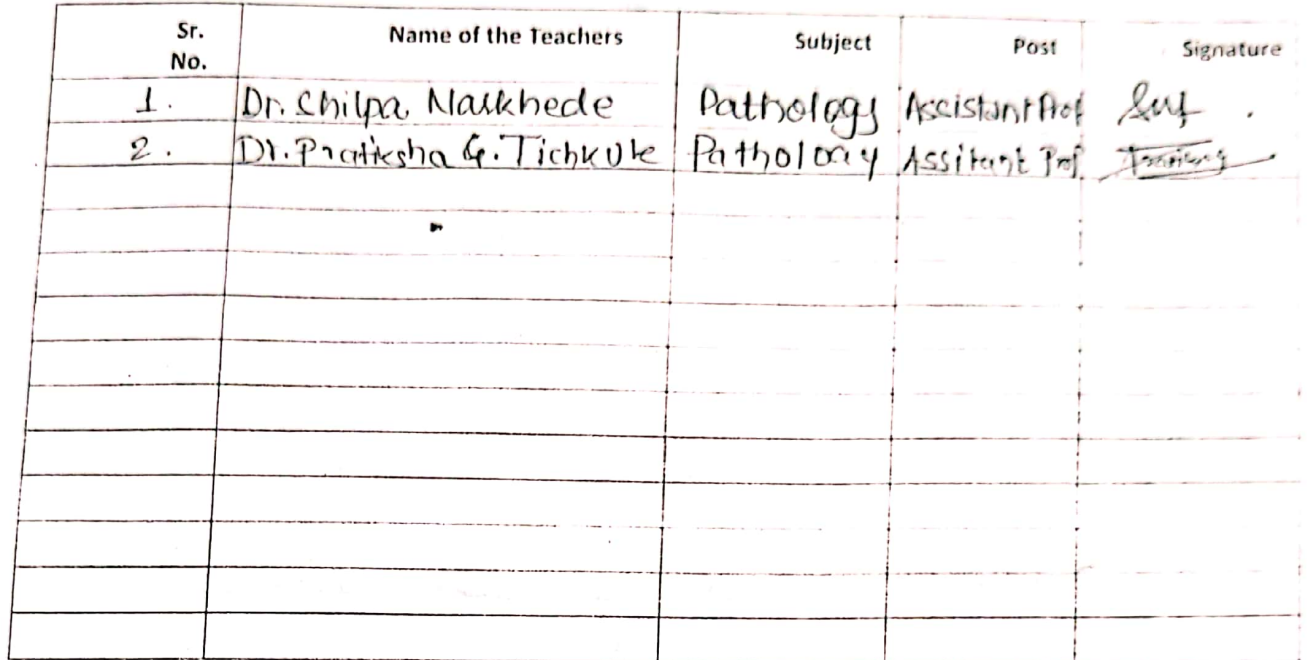 Sr. No. Name of the Teachers Subject Post Signature
1. Dr. Shilpa Naskhede Pathology Assistant Prof
2. Dr. Pratiksha G. Tichkule Pathology Assitant Prof